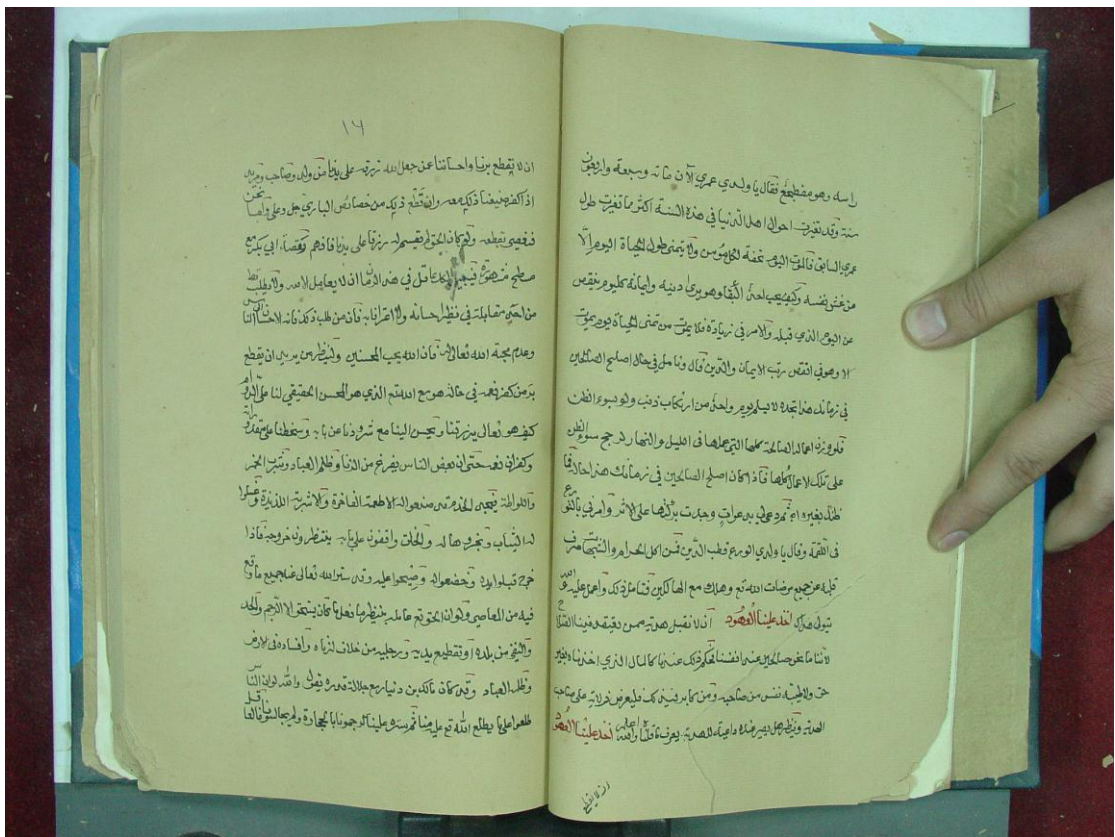 راسه وهو مضطجع فقال يا ولدي عمري الآن مائة وسبعة واربعون
سنة وقد تغيرت احوال اهل الدنيا في هذه السنة اكثر مما تغيرت طول
عمري السابق فالموت اليوم تحفة لكل مؤمن ولا يتمنى طول الحياة اليوم الا
من غش نفسه وكيف يحب احد البقا وهو يرى دينه وايمانه كل يوم ينقص
عن اليوم الذي قبله والامر في زيادة فلا يموت من تمنى الحياة يوم يموت
الا وهو في انقص رتب الايمان والدين قال وتامل في حال اصلح الصالحين
في زمانك هذا تجده لا يسلم يوم واحد من ارتكاب ذنب ولو سوء الظن
فلو وزن اعماله الصالحة كلها التي عملها في الليل والنهار لرجح سوء الظن
على تلك الاعمال كلها فاذا كان اصلح الصالحين في زمانك هذا حاله فما
ظنك بغيره ثم دعى لي بدعوات وجدت بركتها على الاثر وامرني بالتورع
في اللقمة وقال يا ولدي الورع قطب الدين فمن اكل الحرام والشبهات صرف
قلبه عن جميع مرضات الله تع وهلك مع الهالكين فتامل ذلك واعمل عليه والله
يتولى هداك اخذ علينا العهود ان لا نقبل هدية ممن يعتقد فينا الصلاح
لاننا ما نحن صالحين عند انفسنا فحكم ذلك عندنا كالمال الذي اخذناه بغير
حق ولا طيبة نفس من صاحبه ومن كابر فيه
الهدية ولينظر هل يصير عنده داعية للهدية يعرف اخذ علينا العهود
ان لا نقطع
١٦
ان لا نقطع برنا واحساننا عن من جعل الله رزقه على يدنا من ولد وصاحب وغريه
اذا كفر صنيعنا ذلك معه وان قطع ذلك من خصائص الباري جل وعلى واما نحن
فنعصى بقطعه ولو كان الحق لم يقسم له رزقا على يدنا فافهم وقصة ابي بكر مع
مسطح مشهورة فيجب على كل عاقل في هذا الزمان ان لا يعامل الا الله ولا يطلب قط
من احد مقابلة في نظير احسانه ولا اعترافا به فان من طلب ذلك فاته
وعدم محبة الله تعالى له فان الله يحب المحسنين ولينظر من يريد ان يقطع
بره من كفر نعمه في حاله هو مع الله تع الذي هو المحسن الحقيقي لنا على الدوام
كيف هو تعالى يرزقنا ويحسن الينا مع شرودنا عن بابه وسخطنا على مقدوراته
وكفران نعمه حتى ان بعض الناس يفرغ من الزنا وظلم العباد وشرب الخمر
واللواط فيجد الخدم قد صنعوا له الاطعمة الفاخرة والاشربة اللذيذة وغسلوا
له الثياب وبخروها له والخلق واقفون على بابه ينتظرون خروجه فاذا
خرج قبلوا يده وخضعوا له وضجوا عليه وقد ستر الله تعالى عنه جميع ما وقع
فيه من المعاصي ولو ان الحق تع عامله بنظير ما يفعل ما كان يستحق الا الرجم والجلد
والنفي من بلده او تقطيع يديه ورجليه من خلاف لزناه وافساده في الارض
وظلم العباد وقد كان مالك بن دينار مع جلالة قدره يقول والله لو ان الناس
طلعوا على ما يطلع الله تع عليه منا ثم ستره علينا لرجمونا بالحجارة ولم يجالسونا